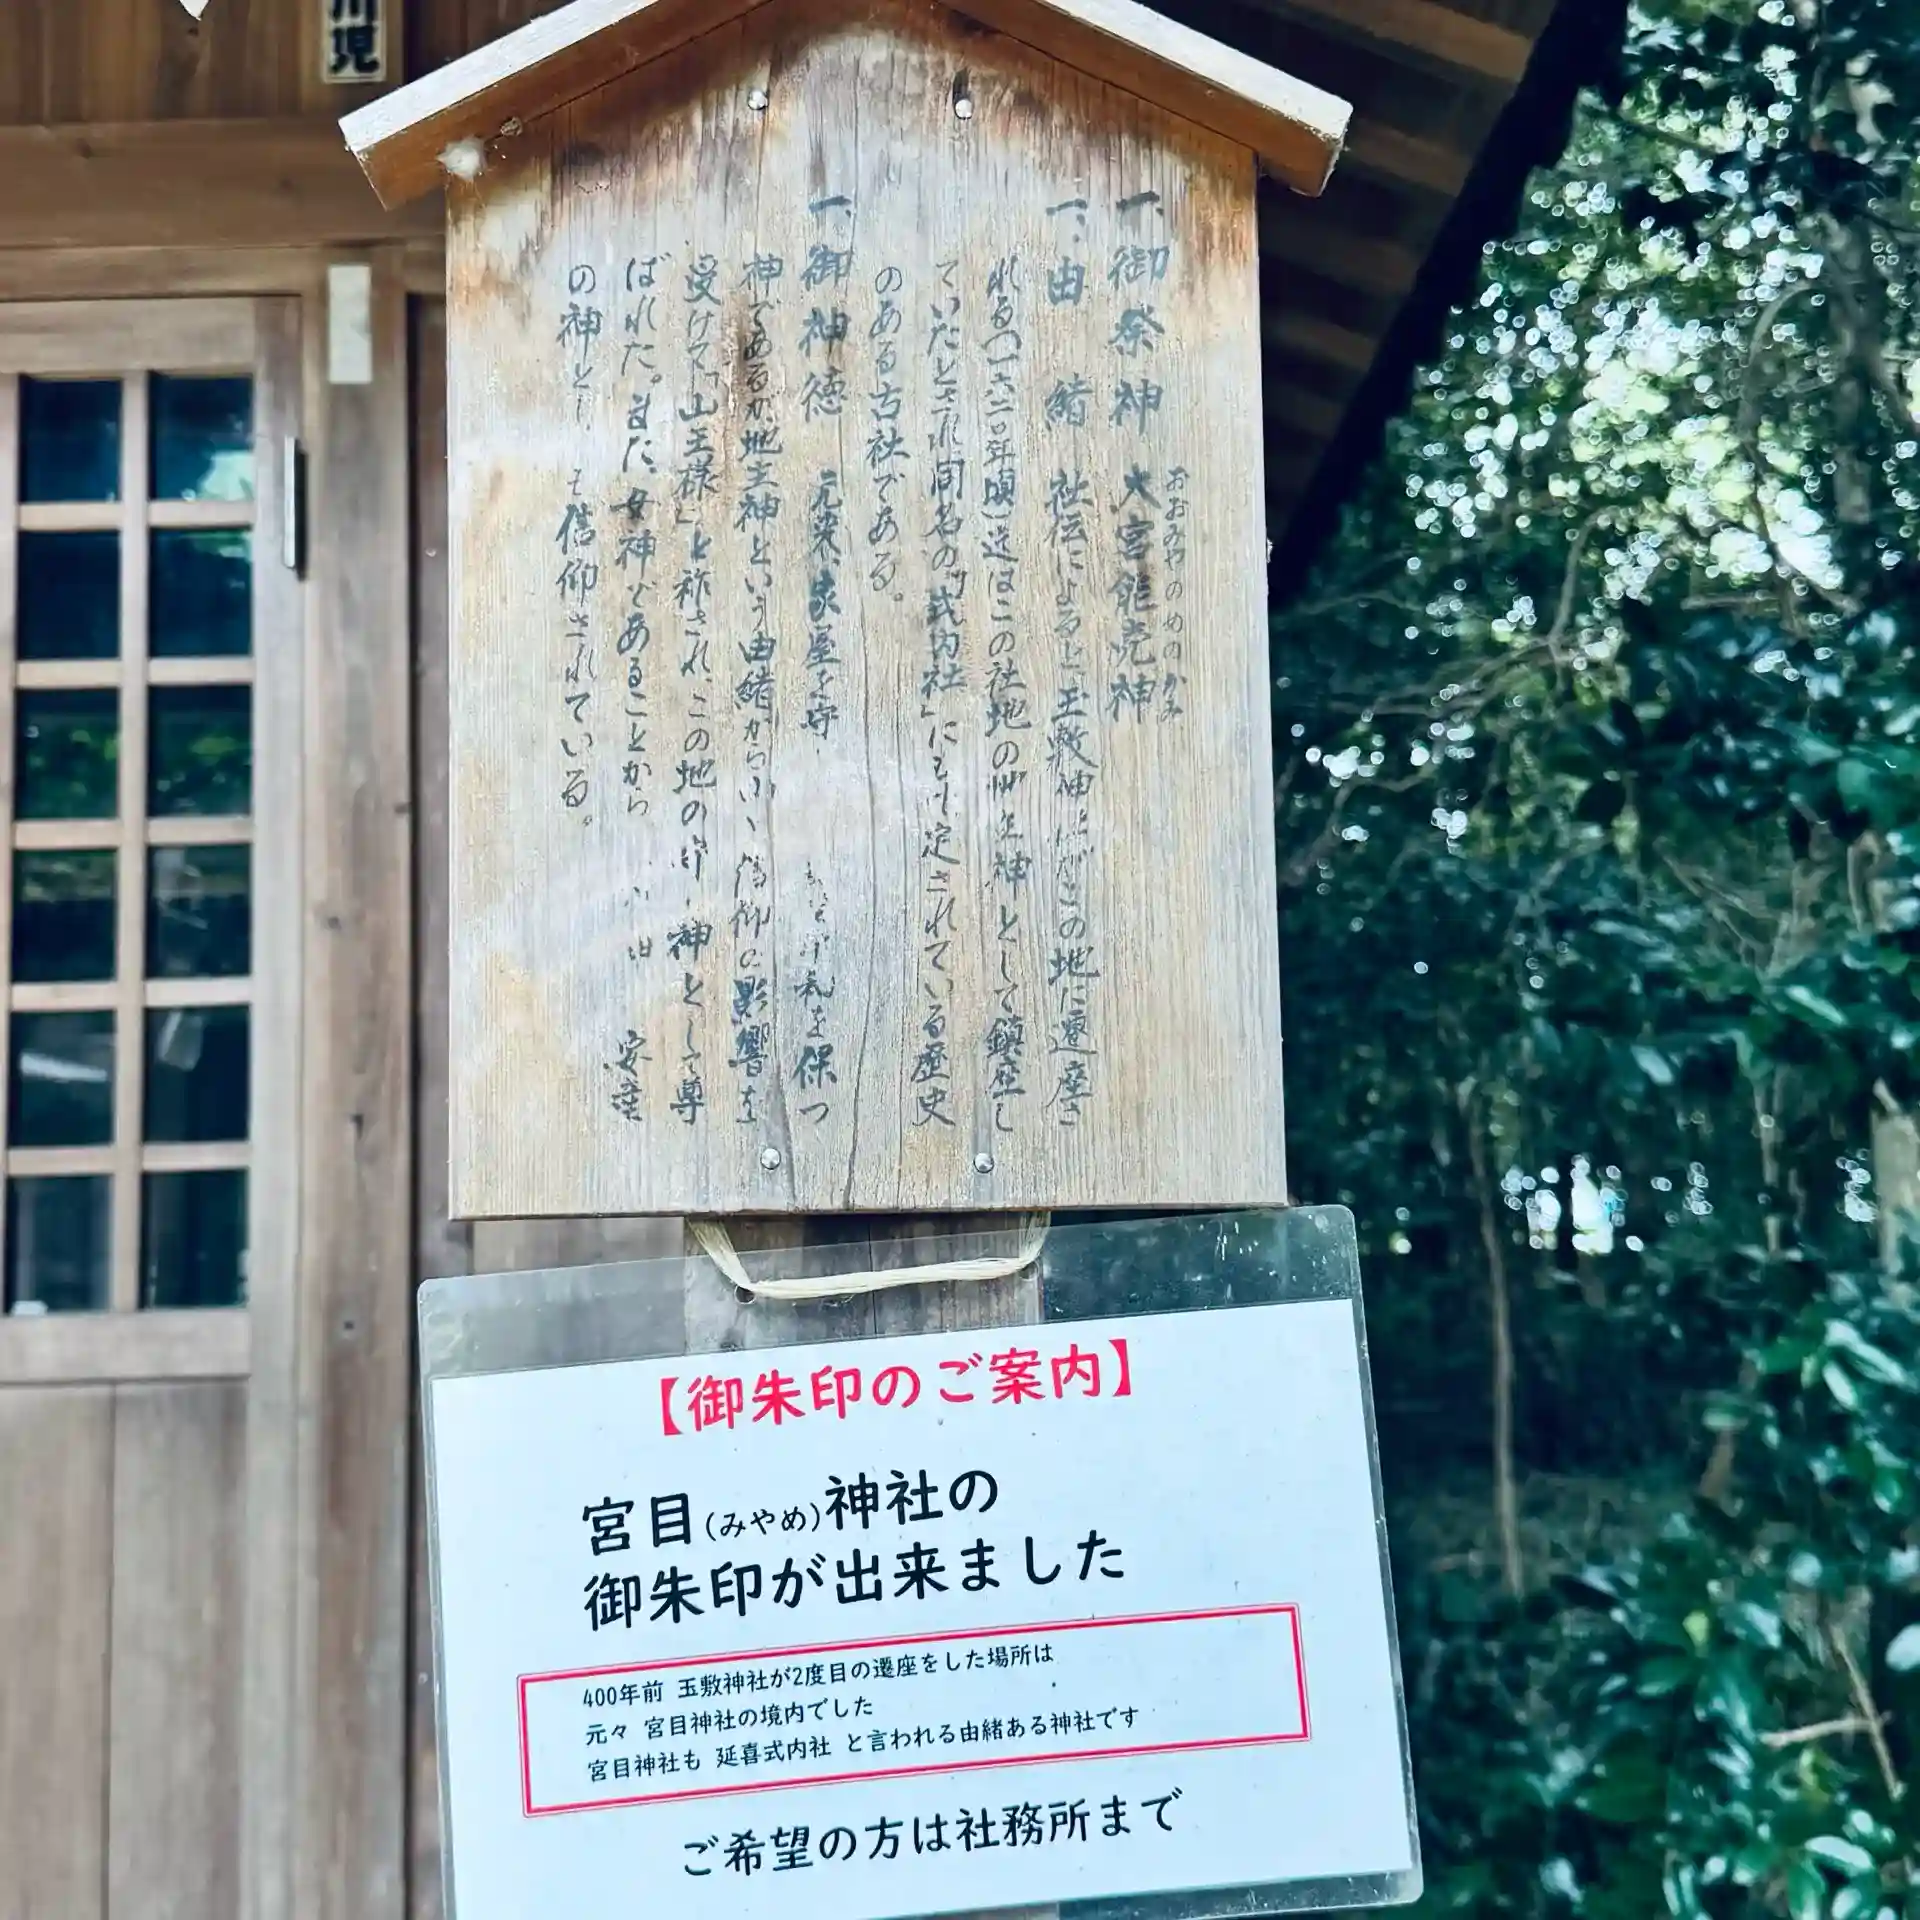 川児
一、御祭神 大宮能売神
おおみやのめのかみ
一、由 緒 社伝によると、玉敷神社がこの地に遷座さ
れる(一六二〇年頃)迄はこの社地の地主神として鎮座し
ていたとされ同名の『式内社』にも 定されている歴史
のある古社である。
一、御神徳 元来、家屋を守 気を保つ
神であるが、地主神という由緒から 信仰の影響を
受けて「山王様」と祚され、この地の 神として尊
ばれた。また、女神であることから 安産
の神として も信仰されている。
【御朱印のご案内】
宮目(みやめ)神社の
御朱印が出来ました
400年前 玉敷神社が2度目の遷座をした場所は
元々 宮目神社の境内でした
宮目神社も 延喜式内社 と言われる由緒ある神社です
ご希望の方は社務所まで